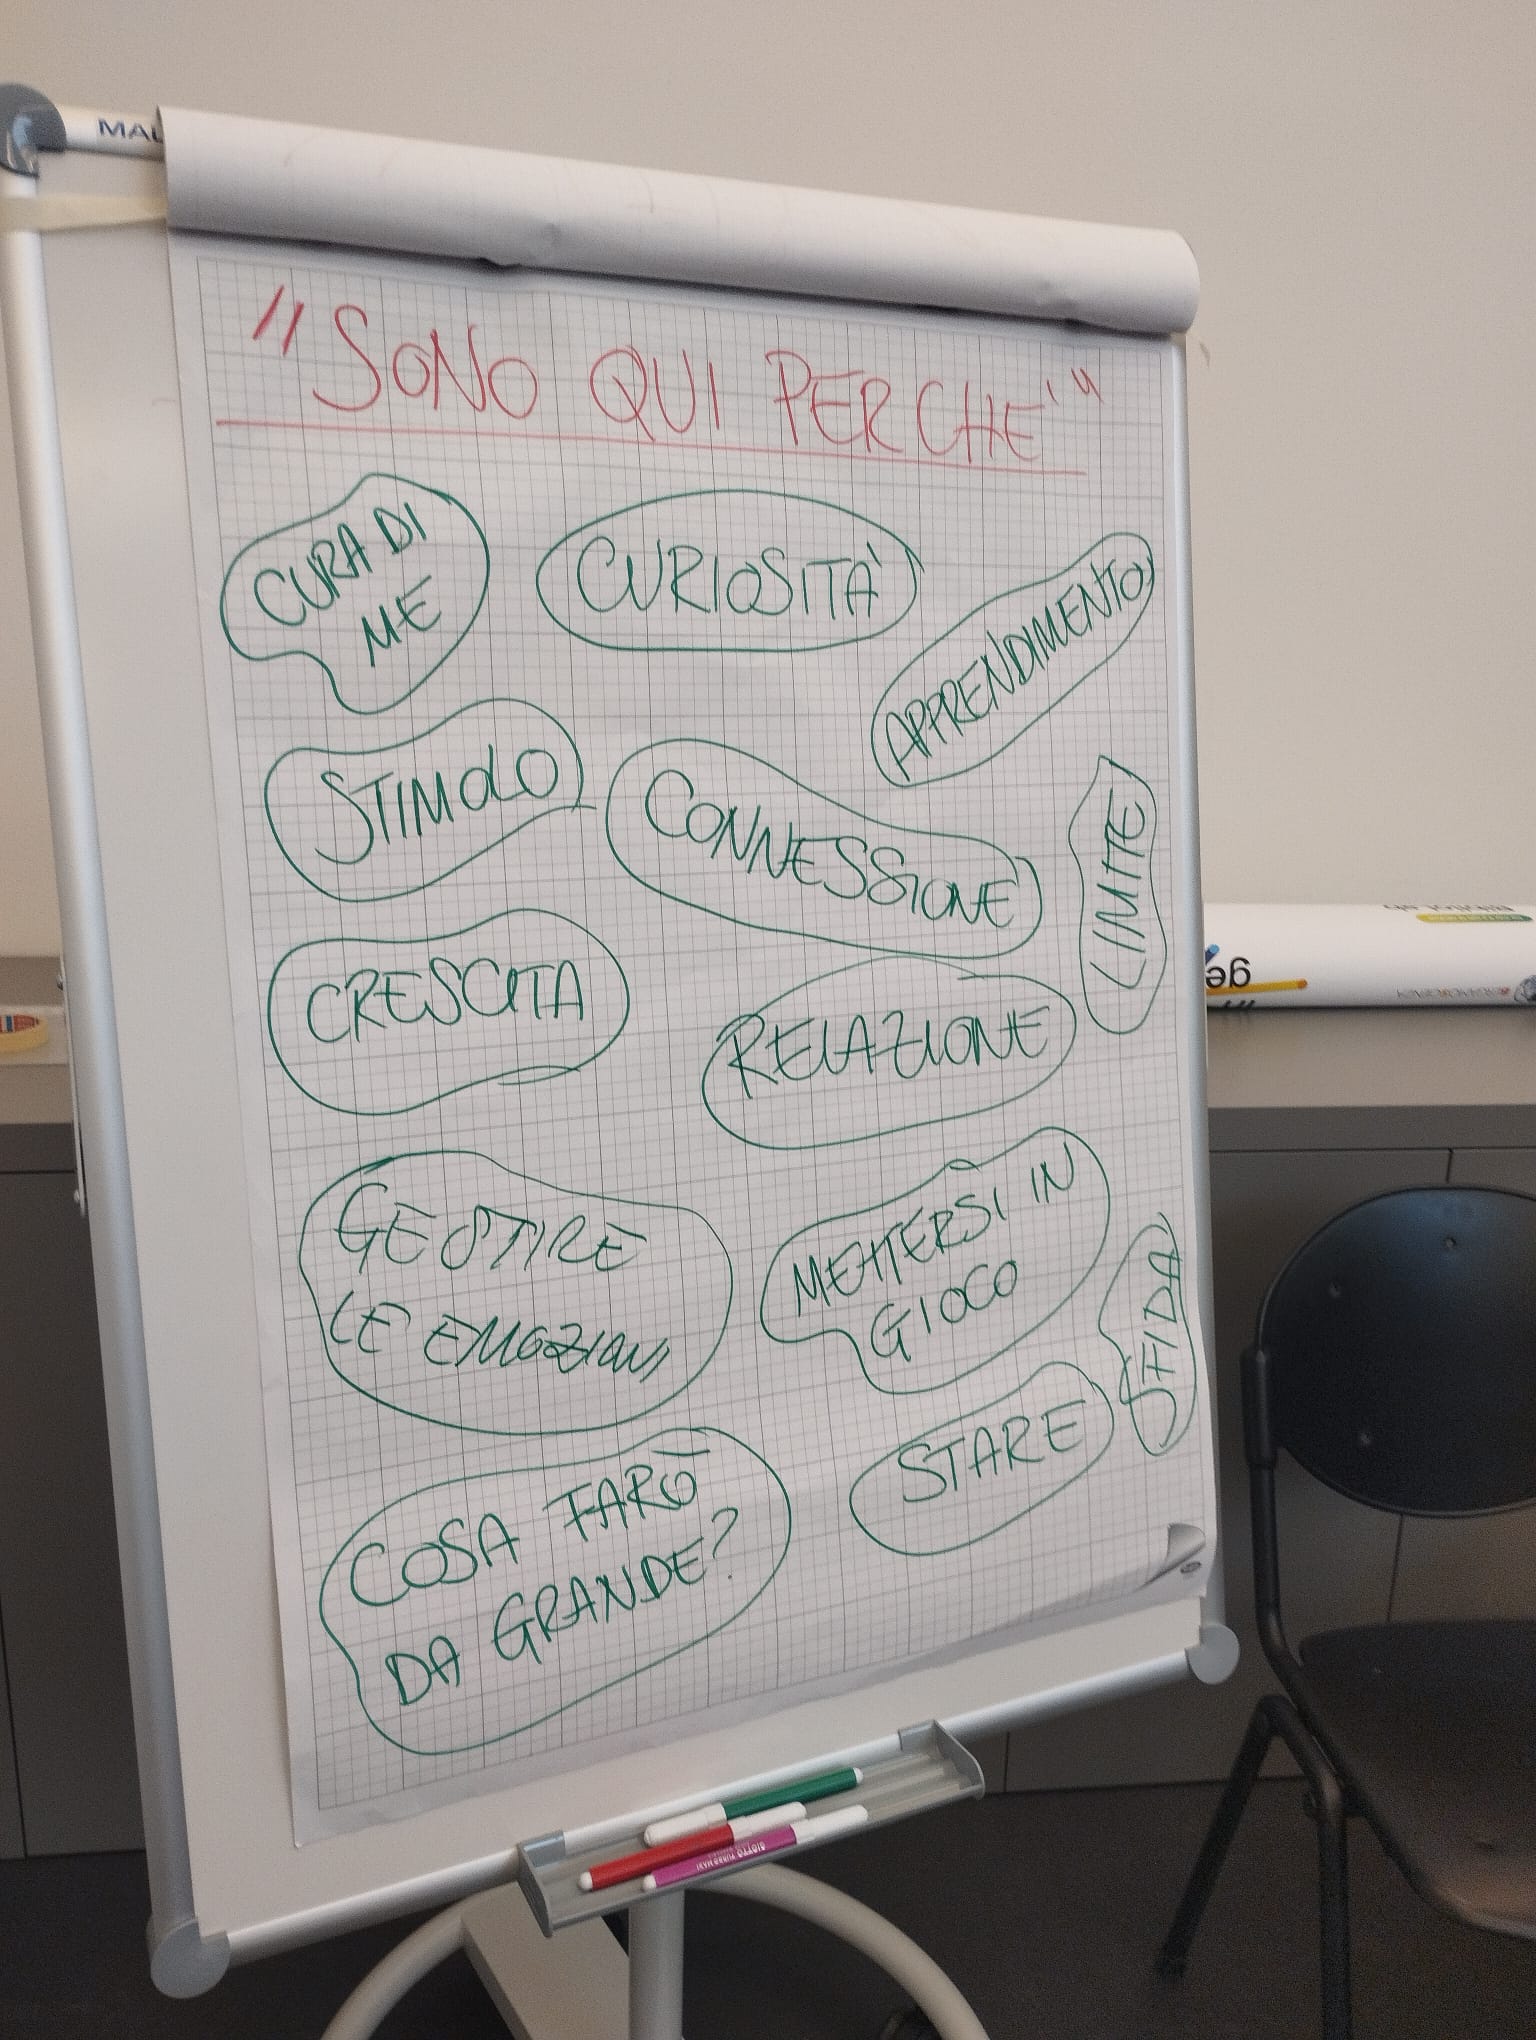 MAU
"SONO QUI PERCHE'"
CURA DI
ME
CURIOSITÀ
APPRENDIMENTO
STIMOLO
CONNESSIONE
LIMITE
CRESCITA
RELAZIONE
GESTIRE
LE EMOZIONI
METTERSI IN
GIOCO
SFIDA
STARE
COSA FARÒ
DA GRANDE?
GIOTTO TURBO MAXI